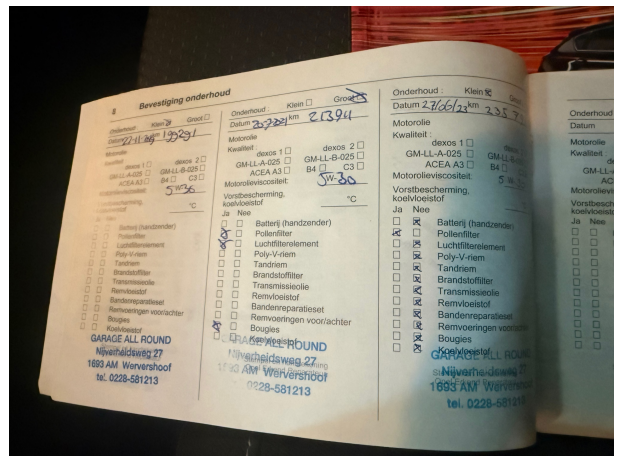 8 Bevestiging onderhoud
Onderhoud Klein Groot
Datum km
Motorolie
Kwaliteit
dexos 1 dexos 2
GM-LL-A-025 GM-LL-B-025
ACEA A3 B4 C3
Motorolieviscositeit:
5W-30
°C
Ja Nee
Batterij (handzender)
Pollenfilter
Luchtfilterelement
Poly-V-riem
Tandriem
Brandstoffilter
Transmissieolie
Remvloeistof
Bandenreparatieset
Remvoeringen voor/achter
Bougies
Koelvloeistof
GARAGE ALL ROUND
Nijverheidsweg 27
1693 AM Wervershoof
tel. 0228-581213
Onderhoud : Klein Groot
Datum km
Motorolie
Kwaliteit :
dexos 1 dexos 2
GM-LL-A-025 GM-LL-B-025
ACEA A3 B4 C3
Motorolieviscositeit:
5W-30
Vorstbescherming,
koelvloeistof °C
Ja Nee
Batterij (handzender)
Pollenfilter
Luchtfilterelement
Poly-V-riem
Tandriem
Brandstoffilter
Transmissieolie
Remvloeistof
Bandenreparatieset
Remvoeringen voor/achter
Bougies
Koelvloeistof
GARAGE ALL ROUND
Nijverheidsweg 27
1693 AM Wervershoof
0228-581213
Onderhoud : Klein
Datum 27/06/23 km
Motorolie
Kwaliteit :
dexos 1
GM-LL-A-025
ACEA A3
Motorolieviscositeit:
Vorstbescherming,
koelvloeistof
Ja Nee
Batterij (handzender)
Pollenfilter
Luchtfilterelement
Poly-V-riem
Tandriem
Brandstoffilter
Transmissieolie
Remvloeistof
Bandenreparatieset
Remvoeringen voor/achter
Bougies
Koelvloeistof
GARAGE ALL ROUND
Nijverheidsweg 27
1693 AM Wervershoof
tel. 0228-581213
Onderhoud
Datum
Motorolie
Kwaliteit :
Ja Nee